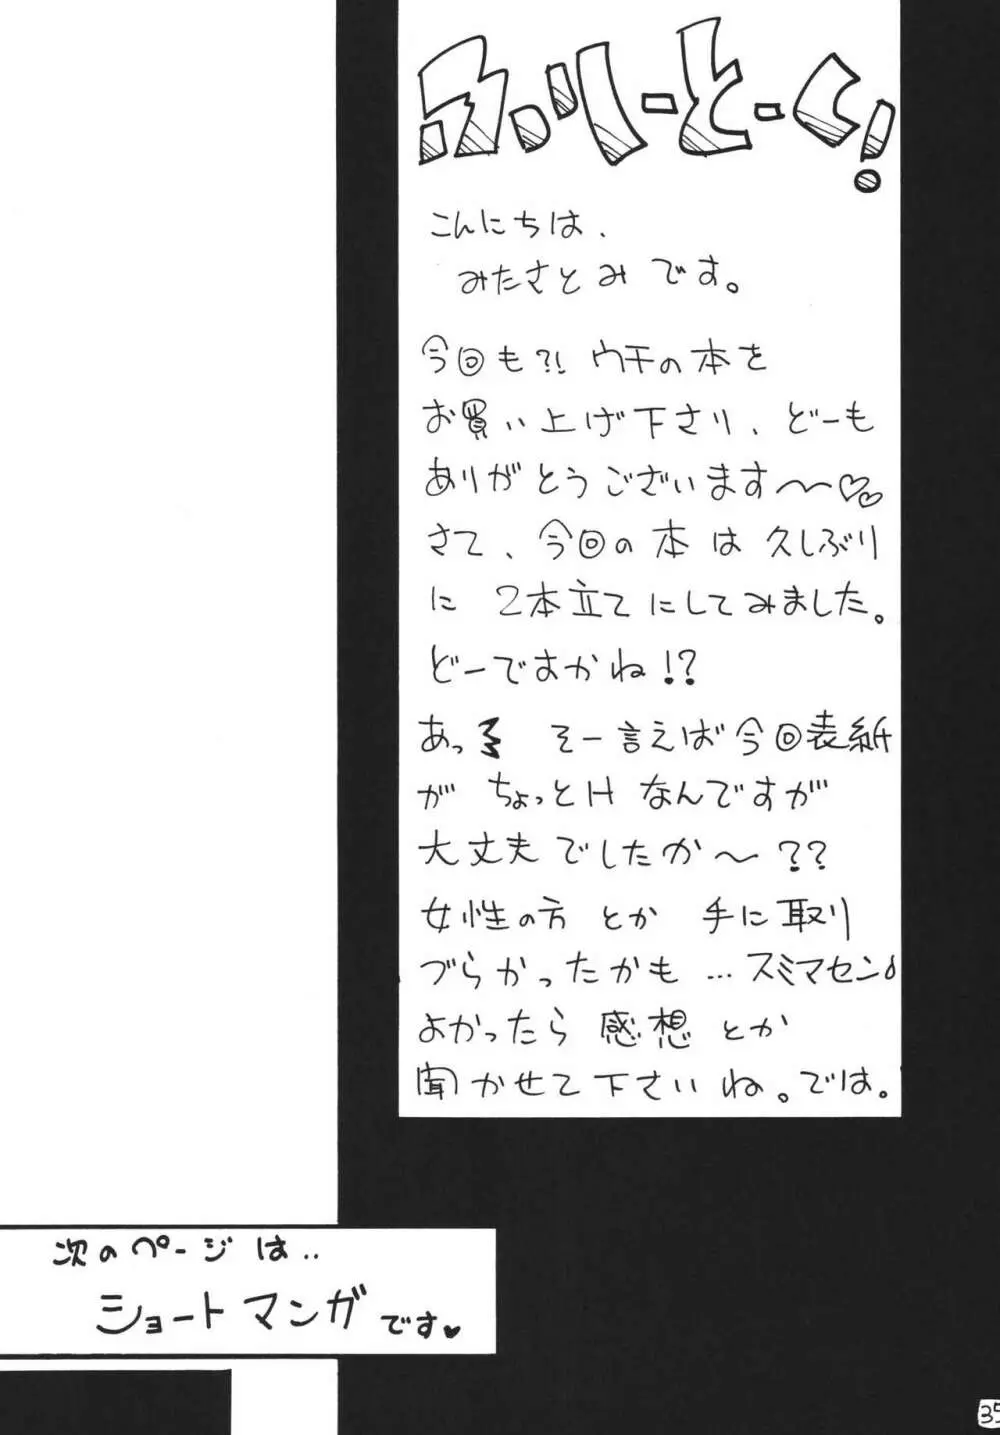 ふりーとーく!
こんにちは、
みたさとみです。
今回も?! ウチの本を
お買い上げ下さり、どーも
ありがとうございます〜♡♡
さて、今回の本は久しぶり
に 2本立てにしてみました。
どーですかね!?
あっ そー言えば今回表紙
が ちょっとH なんですが
大丈夫でしたか〜??
女性の方 とか 手に取り
づらかったかも…スミマセン
よかったら 感想 とか
聞かせて下さいね。では。
次のページは..
ショートマンガです♥
35